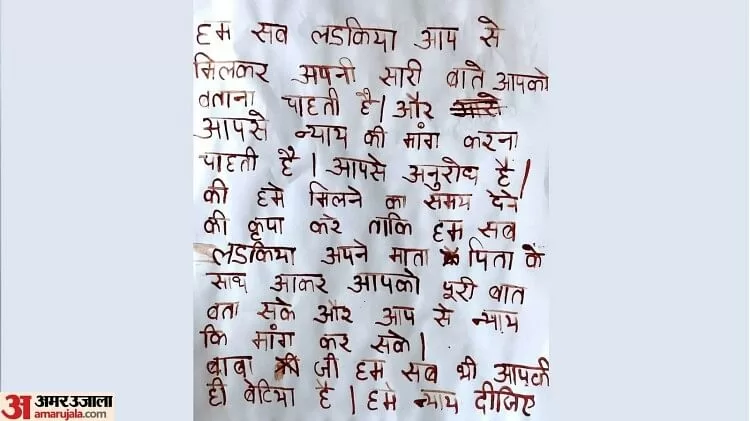 हम सब लडकिया आप से
मिलकर अपनी सारी बाते आपको
बताना चाहती है। और
आपसे न्याय की मांग करना
चाहती है। आपसे अनुरोध है।
की हमे मिलने का समय देने
की कृपा करे ताकि हम सब
लडकिया अपने माता पिता के
साथ आकर आपको पूरी बात
बता सके और आप से न्याय
कि मांग कर सके।
बाबा जी हम सब भी आपकी
ही बेटिया है। हमे न्याय दीजिए
अमरउजाला
amarujala.com